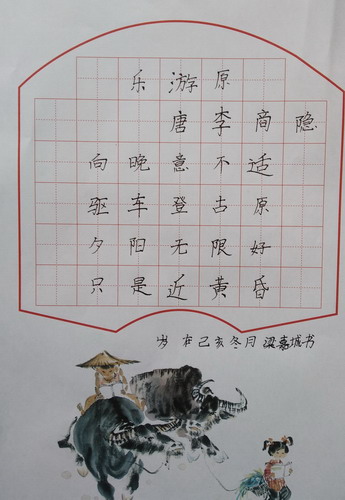 乐游原
唐 李商隐
向晚意不适
驱车登古原
夕阳无限好
只是近黄昏
岁在己亥冬月梁嘉城书